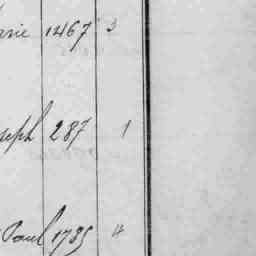 arie 1467 3
seph 287 1
Paul 1785 4